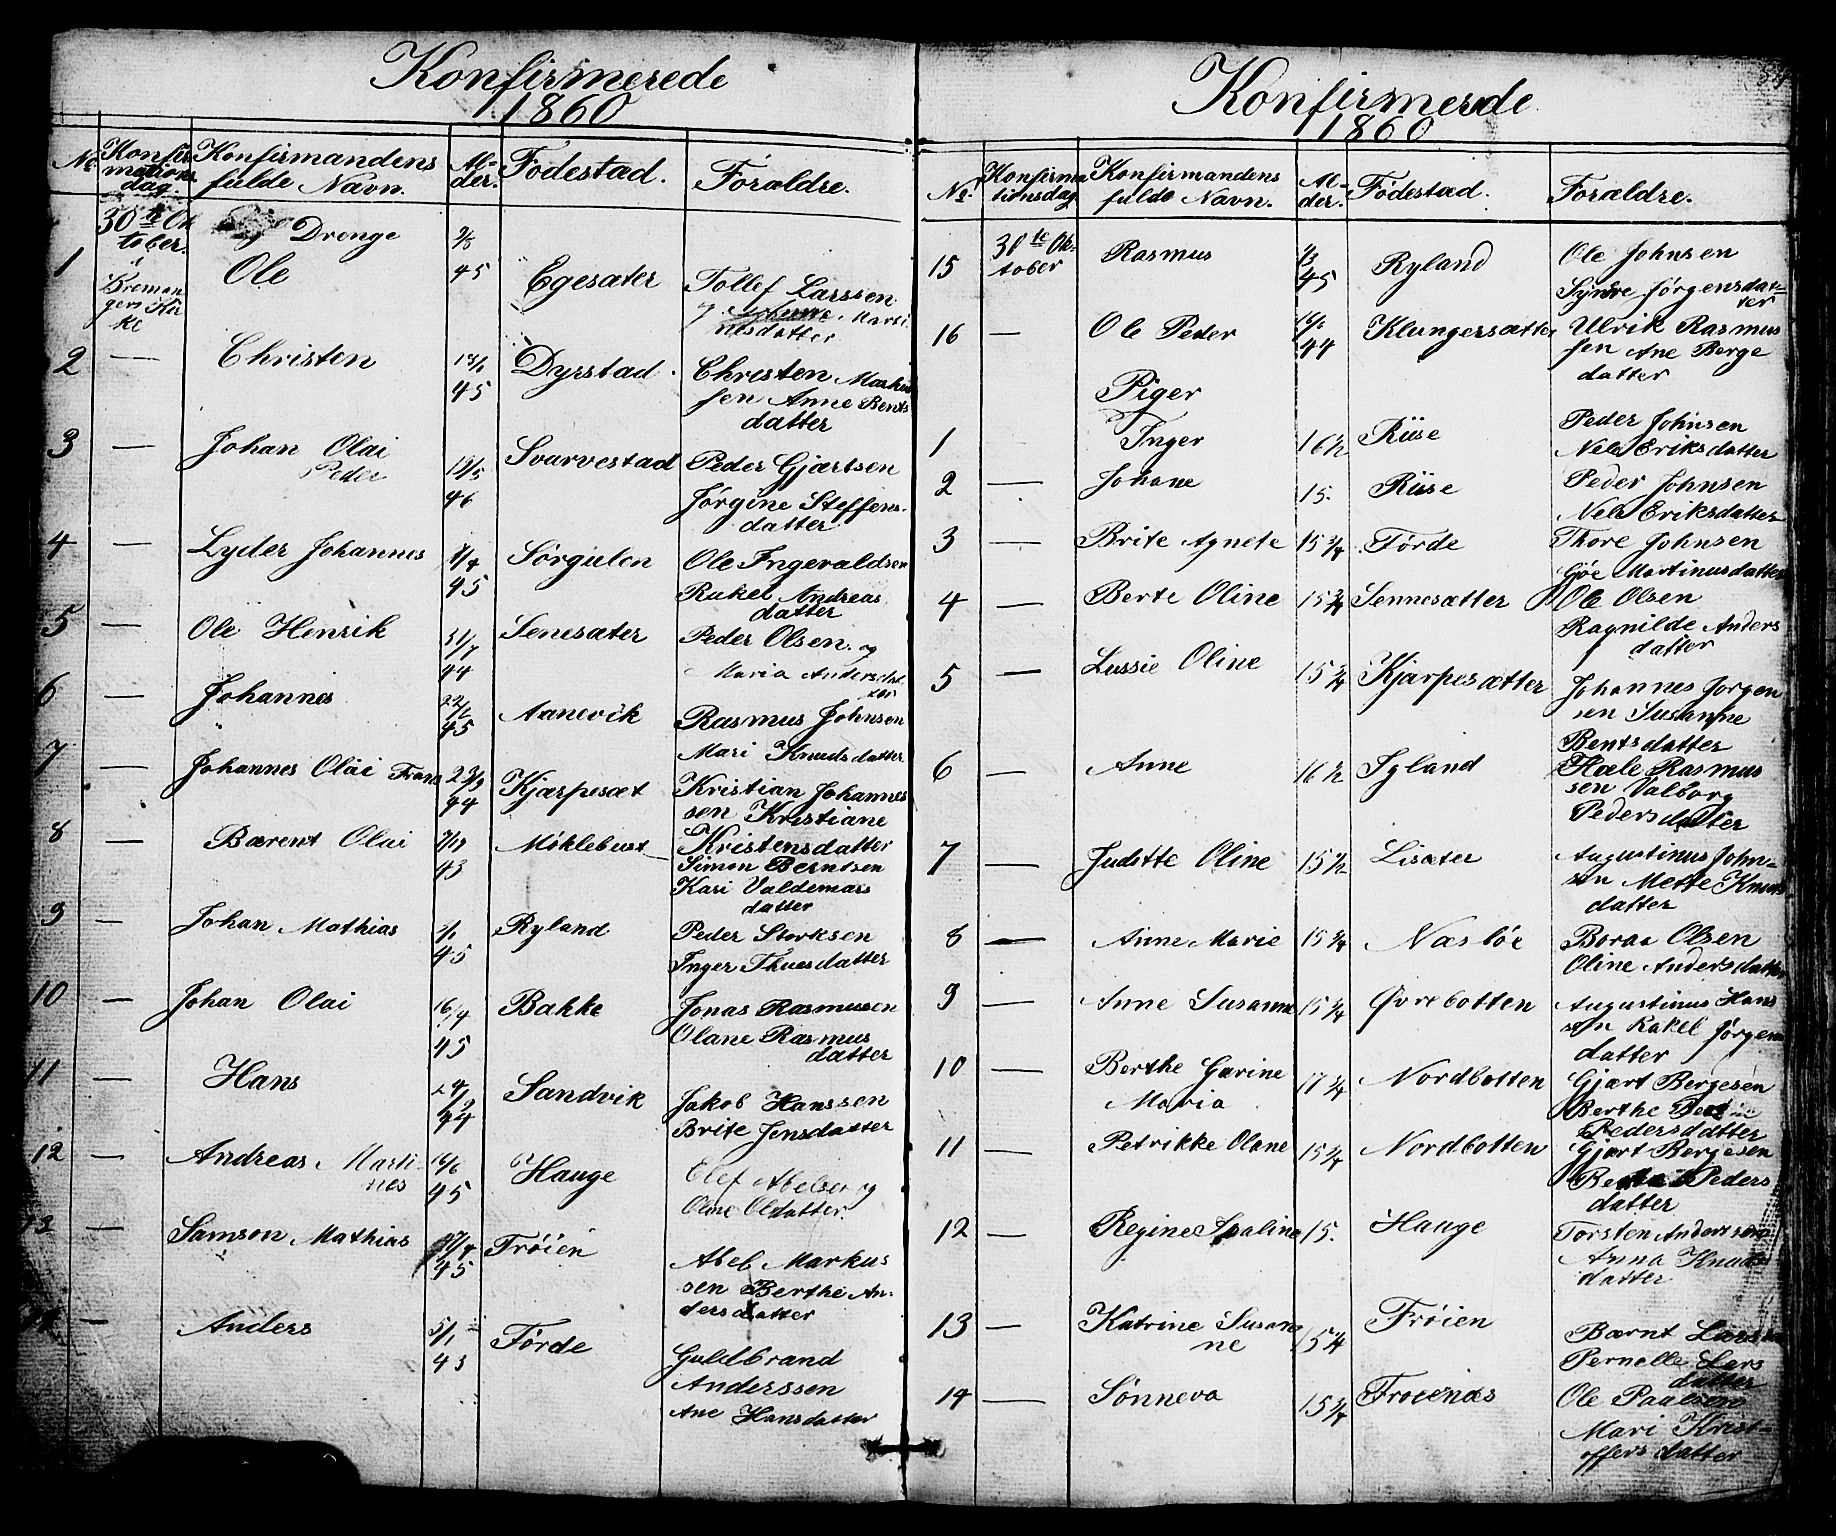 Konfirmerede
1860
No. Konfirmations dag. Konfirmandens fulde Navn. Alder. Fodestad. Forældre.
30te Oktober. i Bremangers Kirke
Drenge
1 Ole 45 Egesæter Tollef Larssen
og Martinesdatter
2 — Christen 13/1 45 Dyrstad. Christen Markussen Anne Bents
datter
3 — Johan Olai Peder 46 Svarvestad Peder Gjærtsen
Jørgine Steffens
datter
4 — Lyder Johannes 45 Sørgulen Ole Ingevaldsen
Rakel Andreas
datter
5 — Ole Henrik 31/7 44 Senesæter Peder Olsen og
Maria Andersdatter
6 — Johannes 45 Aanevik Rasmus Johnsen
Mari Knudsdatter
7 — Johannes Olai Frans 44 Kjærpesæt Kristian Johannes
sen Kristiane
Kristensdatter
8 — Bærent Olai 43 Møklebust Simon Berntsen
Kari Valdemars
datter
9 — Johan Mathias 45 Ryland Peder Storksen
Inger Thuesdatter
10 — Johan Olai 16/4 45 Bakke Jonas Rasmussen
Olane Rasmus
datter
11 — Hans 24/9 44 Sandvik Jakob Hanssen
Brite Jensdatter
12 — Andreas Martines 16/6 45 Hauge Elef Abelsen og
Oline Olsdatter.
13 — Samson Mathias 45 Frøien Abel Markus
sen Berthe An-
dersdatter
14 — Anders 5/1 45 Førde Guldbrand
Anderssen
Ane Hansdatter
Konfirmerede
1860
No. Konfirmationsdag Konfirmandens fulde Navn. Alder. Fødestad. Forældre.
15 30te Oktober Rasmus 45 Ryland Ole Johnsen
Synve Jørgensdatter
16 — Ole Peder 44 Klungersætter Ulrik Rasmus
sen Ane Berge
datter
Piger
1 Inger 16 1/2 Riise Peder Johnsen
Nele Eriksdatter
2 — Johane 15. Riise Peder Johnsen
Nele Eriksdatter
3 — Brite Agnete 15 3/4 Førde Thore Johnsen
Gjøe Martinusdatter
4 — Berte Oline 15 3/4 Sennesætter Ole Olsen
Ragnilde Anders
datter
5 — Lussie Oline 15 3/4 Kjærpesætter Johannes Jorgen
sen Susanne
Bentsdatter
6 — Anne 16 1/2 Igland Hæle Rasmus
sen Valborg
Pedersdatter
7 — Judette Oline 15 1/2 Lisæter Augustinus John-
sen Mette Knuds
datter
8 — Anne Marie 15 3/4 Næsbøe Olsen
Oline Andersdatter
9 — Anne Susanna 15 3/4 Øvrebotten Augustinus Hans
sen Rakel Jørgens
datter
10 — Berthe Garine Maria 17 1/4 Nordbotten Gjært Bergesen
Berthe
Pedersdatter
11 — Petrikke Olane 15 1/4 Nordbotten Gjært Bergesen
Peders
datter
12 — Regine 15. Hauge Torsten Anderssen
Anna Knuds
datter
13 — Katrine Susanne 15 1/4 Frøien Bærnt Larssen
Pernelle Lars
datter
14 — Sønneva 15 1/4 Froienæs Ole Paulsen
Mari Krist-
offersdatter